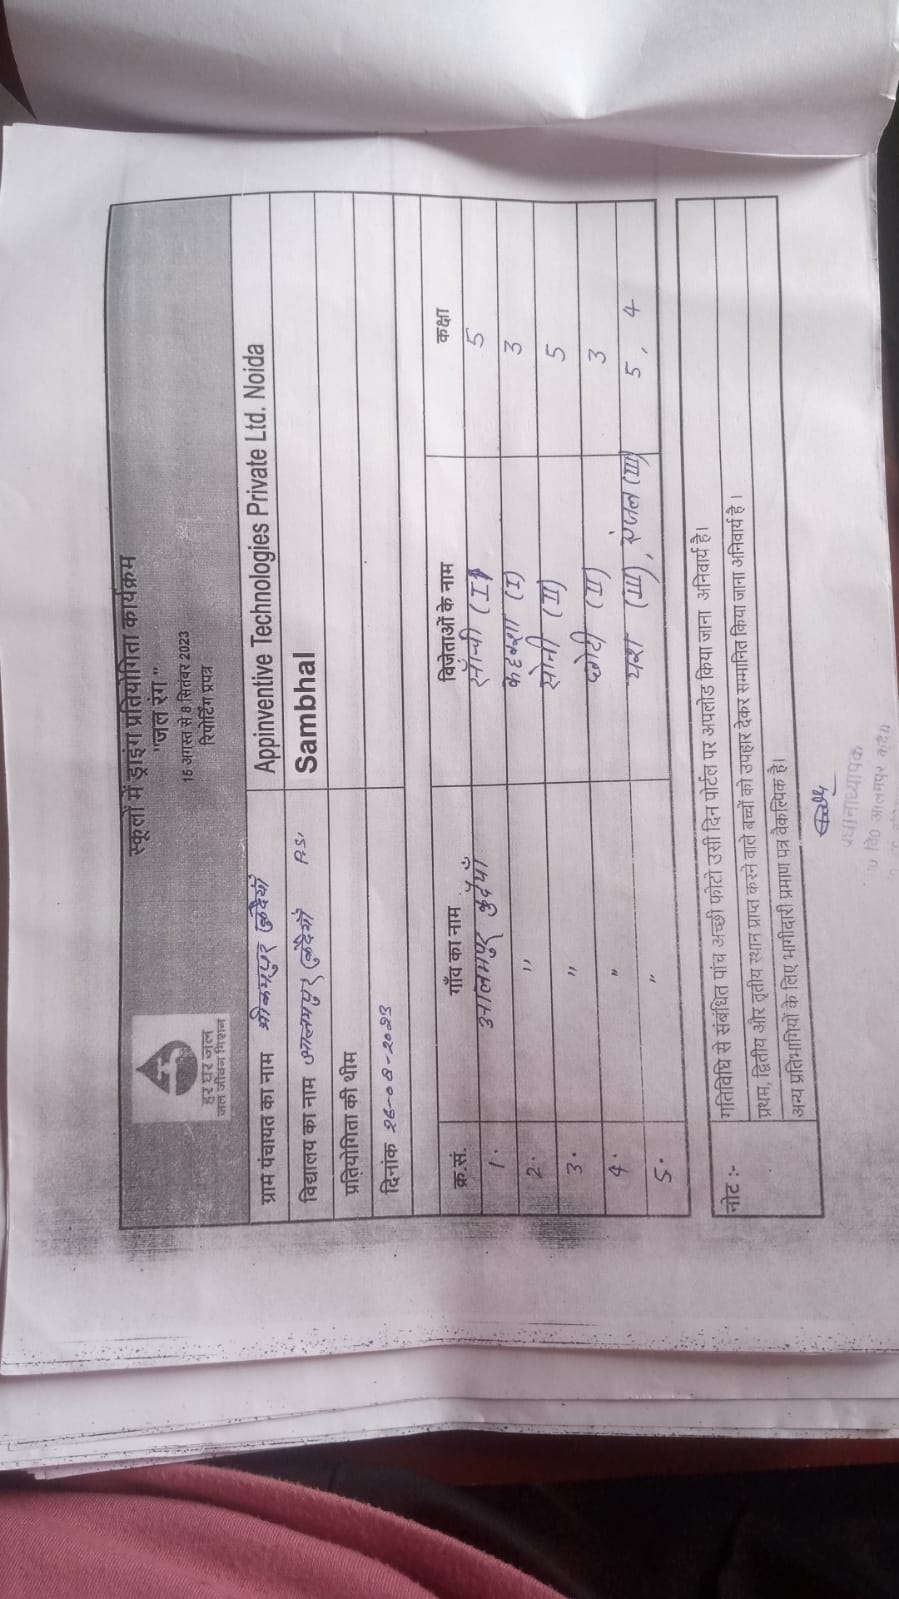 स्कूलों में ड्राइंग प्रतियोगिता कार्यक्रम
"जल रंग"
15 अगस्त से 8 सितंबर 2023
रिपोर्टिंग प्रपत्र
हर घर जल
जल जीवन मिशन
ग्राम पंचायत का नाम Appinventive Technologies Private Ltd. Noida
विद्यालय का नाम आलमपुर P.S. Sambhal
प्रतियोगिता की थीम
दिनांक 26-08-2023
क्र.सं. गाँव का नाम विजेताओं के नाम कक्षा
1. आलमपुर (I) 5
2. " (I) 3
3. " सोनी (II) 5
4. " छोटी (II) 3
5. " यश (III), (III) 5, 4
नोट :- गतिविधि से संबधित पांच अच्छी फोटो उसी दिन पोर्टल पर अपलोड किया जाना अनिवार्य है।
प्रथम, द्वितीय और तृतीय स्थान प्राप्त करने वाले बच्चों को उपहार देकर सम्मानित किया जाना अनिवार्य है।
अन्य प्रतिभागियों के लिए भागीदारी प्रमाण पत्र वैकल्पिक है।
प्रधानाध्यापक
वि0 आलमपुर